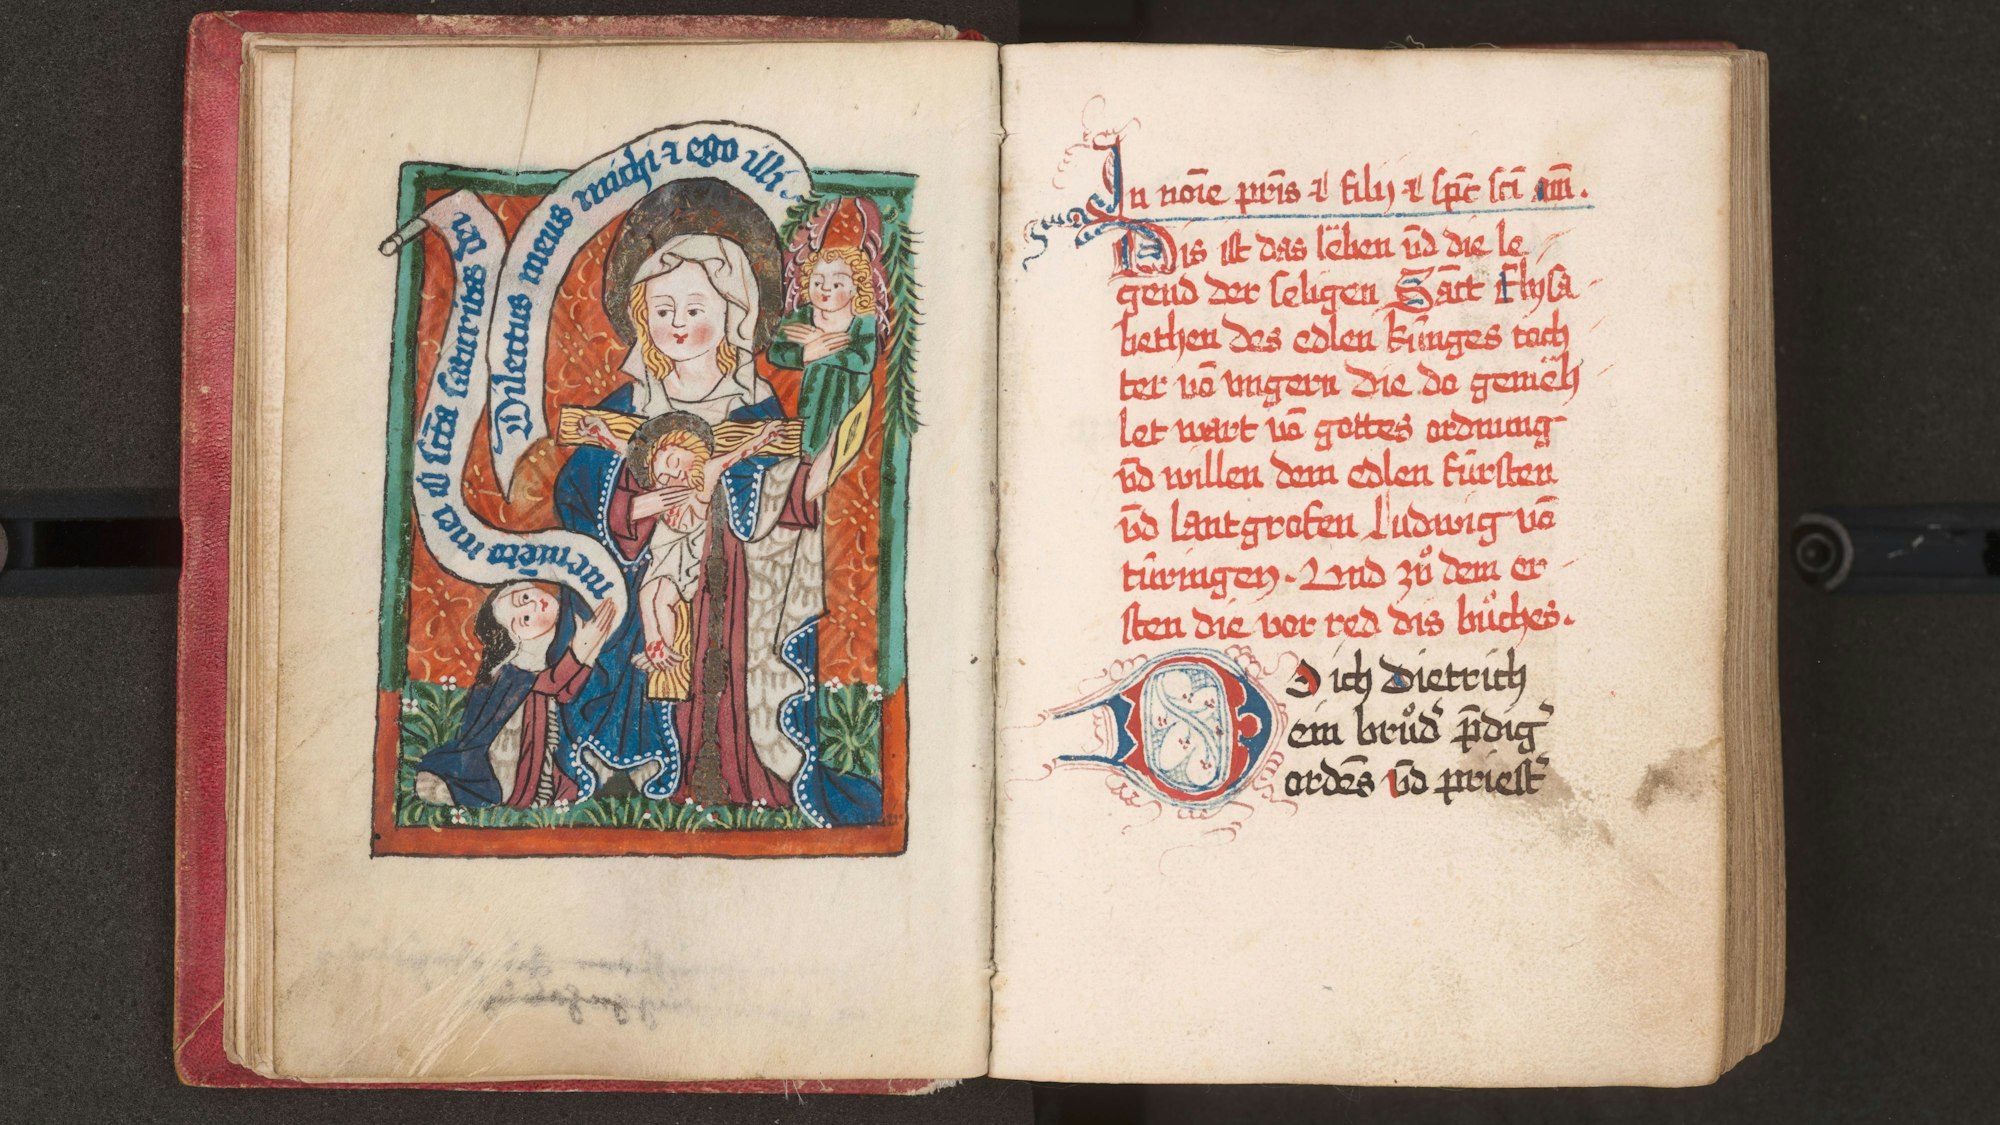 Dilectus meus michi ⁊ ego illi
mei o scta
In noīe pr̄is ⁊ filij ⁊ sp̄c sc̄i am̄.
Dis ist das lëben vn̄d die le
gend der seligen Sāct Elysa
bethen des edlen kúnges toch
ter vō vngern die do gemëh
let wart vō gottes ordnung
vn̄d willen dem edlen fúrsten
vn̄d lantgrofen Ludwig vō
túringen. Vnd zů dem er
sten die vor red dis bůches.
O ich dietrich
ein brůd' p̄dig'
ordēs vn̄d priest'